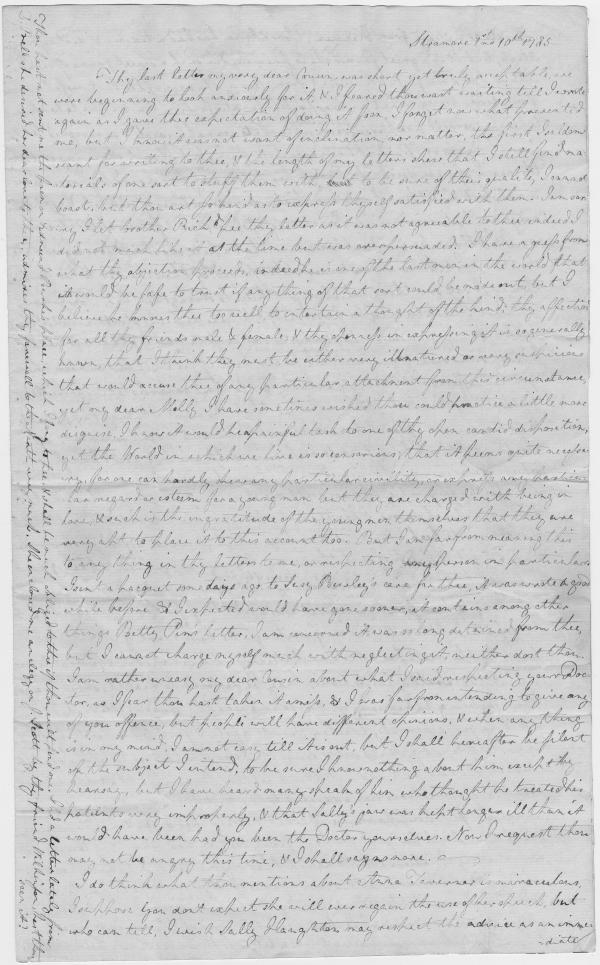 10th 1785
Thy last letter my very dear Cousin, was short yet truly acceptable, we
were beginning to look anxiously for it, & I feared thou wast waiting till I wrote
again as I gave thee expectation of doing it soon, I forget now what prevented
me, but I know it was not want of inclination, nor matter, the first I seldom
want for writing to thee, & the length of my letters shews that I still find ma-
terials of one sort to stuff them with, but to be sure of their quality I cannot
boast, but thou art so kind as to express thyself satisfied with them. I am sor-
ry I let brother Richd. see thy letter as it was not agreeable to thee indeed I
did not much like it at the time but was overpersuaded. I have a guess from
what thy objection proceeds, indeed he is one of the last men in the world that
it would be safe to trust if any thing of that sort could be made out, but I
believe he knows thee too well to entertain a thought of the kind, thy affection
for all thy friends male & female, & thy openness in expressing it is so generally
known, that I think they must be either very illnatured or very suspicious
that would accuse thee of any particular attachment from this circumstance,
yet my dear Molly I have sometimes wished thou could practice a little more
disguise, I know it would be a painful task to one of thy open candid disposition,
yet the World in which we live is so censorious, that it seems quite necessa-
ry, for one can hardly shew any particular civility, or express any particu-
lar regard or esteem for a young man but they are charged with being in
love, & such is the ingratitude of the young men themselves that they are
very apt to place it to this account too. But I am far from meaning this
to any thing in thy letters to me, or respecting any person in particular.
I sent a pacquet some days ago to care for thee, it was wrote a good
while before & I expected would have gone sooner, it contains among other
things Betty Pim's letter, I am concerned it was so long detained from thee,
but I cannot charge myself much with neglecting it, neither dost thou.
I am rather uneasy my dear Cousin about what I said respecting your Doc-
tor, as I fear thou hast taken it amiss, & I was far from intending to give any
of you offence, but people will have different opinions, & when any thing
is in my mind, I am not easy till it is out, but I shall hereafter be silent
on the subject I intend, to be sure I know nothing about him except by
hearsay, but I have heard many speak of him who thought he treated his
patients very improperly, & that Sally's jaw was kept longer ill than it
would have been had you been the Doctor yourselves. Now I request thou
may not be angry this time, & I shall say no more.
I do think what thou mentions about Anna Taverner is miraculous,
I suppose you don't expect she will ever regain the use of her speech, but
who can tell, I wish Sally Haughton may respect the advice as an imme
-diate